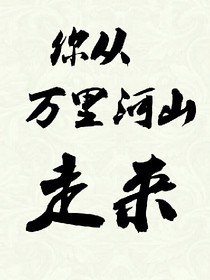 你从
万里河山
走来